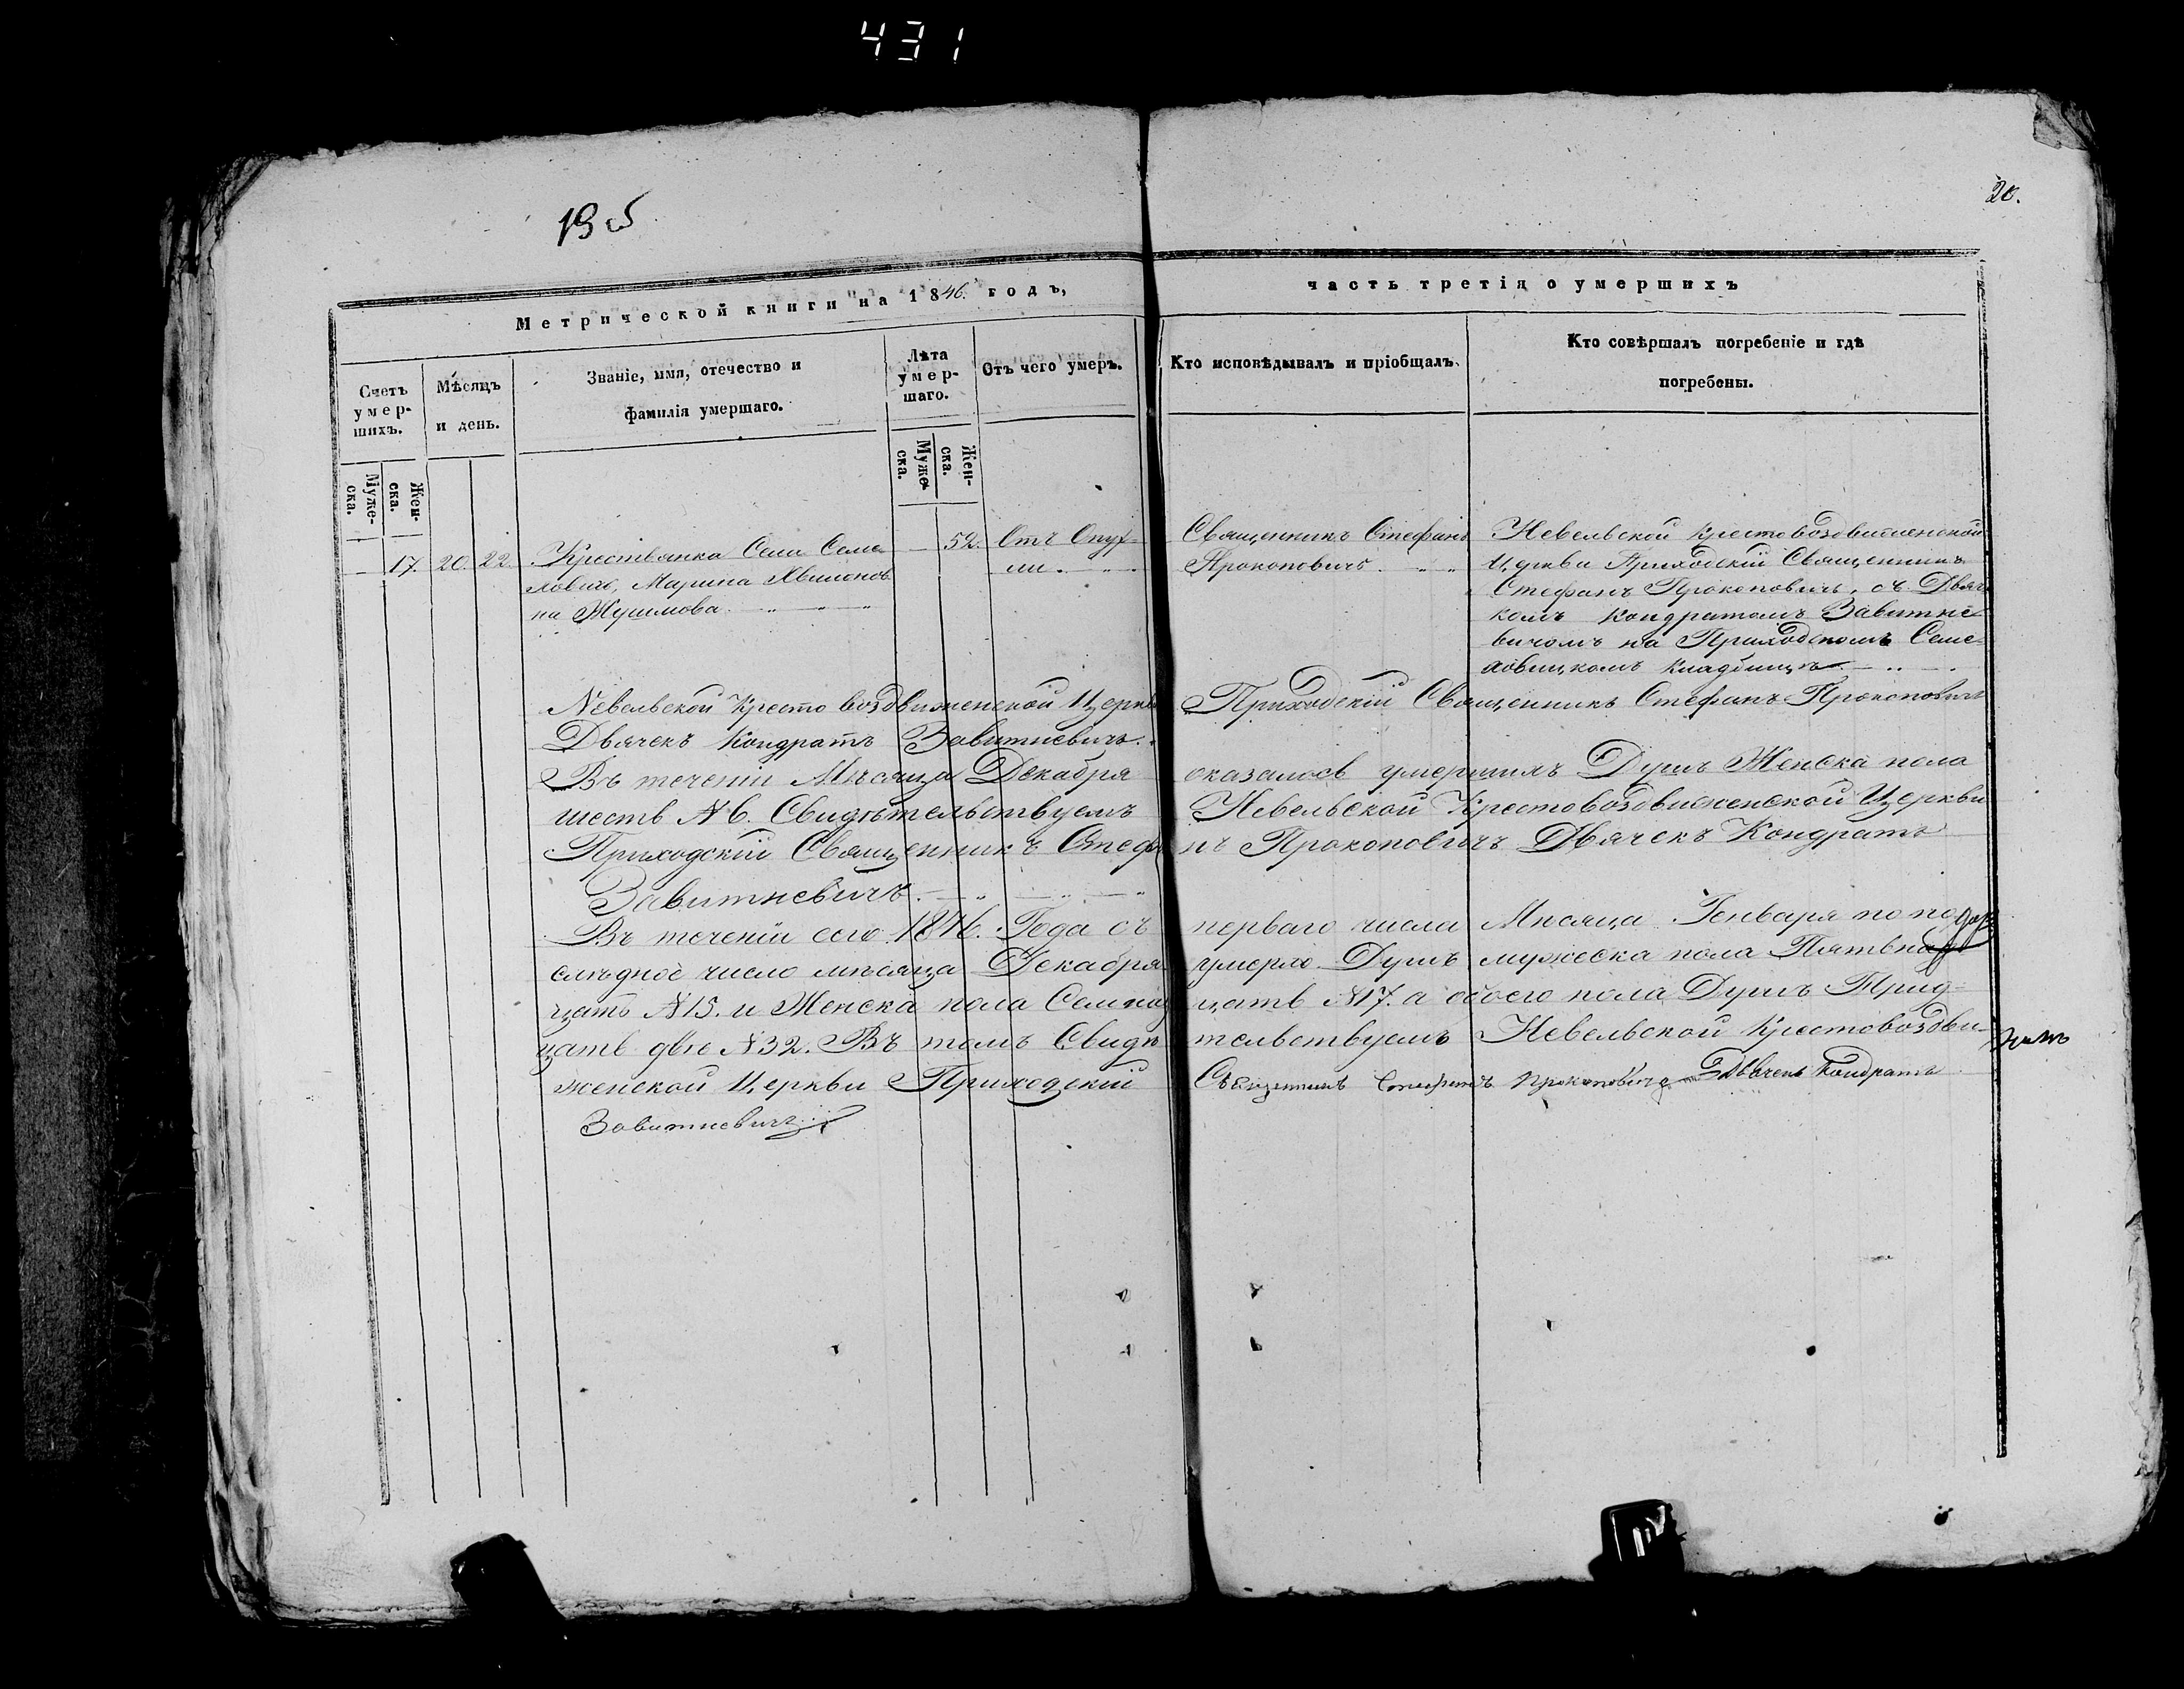 431
19 об
20.
Метрической книги на 1846. годъ,
часть третія о умершихъ
Счетъ умер-шихъ.
Мѣсяцъ и день.
Званіе, имя, отечество и фамилія умершаго.
Лѣта умер-шаго.
Отъ чего умеръ.
Кто исповѣдывалъ и пріобщалъ.
Кто совѣршалъ погребеніе и гдѣ погребены.
Муже-ска.
Жен-ска.
Муже-ска.
Жен-ска.
17. 20. 22.
Крестьянка Села Семе-
ховичъ, Марина
на Жушмова
52.
Отъ Опух-
ли.
Священникъ Стефанъ
Прокоповичъ.
Невельской Крестовоздвиженской
Церкви Приходскій Священникъ
Стефанъ Прокоповичъ, съ Дьяч
комъ Кондратомъ Завитне-
вичомъ на Приходскомъ Семе-
ховицкомъ кладбищѣ
Невельской Кресто воздвиженской Церкви Приходскій Священникъ Стефанъ Прокоповичъ
Дьячекъ Кондратъ Завитневичъ.
Въ теченіи Мѣсяца Декабря оказалось умершихъ Душъ Женска пола
шесть №6. Свидѣтельствуемъ Невельской Крестовоздвиженской Церкви
Приходскій Священникъ Стефанъ Прокоповичъ Дьячекъ Кондратъ
Завитневичъ.
Въ теченіи сего 1846. Года съ перваго числа Мѣсяца Генваря по по
слѣдное число мѣсяца Декабря умерло Душъ мужеска пола Пятьнад
цать №15. и Женска пола Семнад цать №17. а обоего пола Душъ Трид=
цать двѣ №32. Въ томъ Свидѣ тельствуемъ Невельской Крестовоздви-
женской Церкви Приходскій Священникъ Стефанъ Прокоповичъ Дьячекъ Кондратъ
Завитневичъ